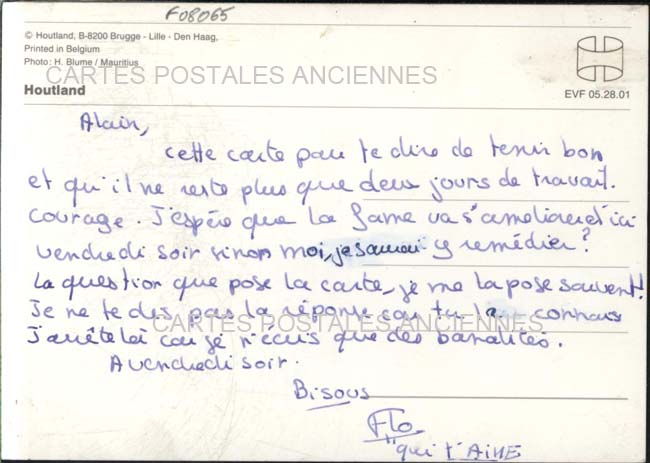 F08065
© Houtland, B-8200 Brugge - Lille - Den Haag,
Printed in Belgium
Photo: H. Blume / Mauritius
CARTES POSTALES ANCIENNES
Houtland
EVF 05.28.01
Alain,
cette carte pour te dire de tenir bon
et qu'il ne reste plus que deux jours de travail.
courage. J'espère que la forme va s'améliorer d'ici
vendredi soir sinon moi, je saurai y remédier?
La question que pose la carte, je me la pose souvent!
Je ne te dis pas la réponse car tu la connais
CARTES POSTALES ANCIENNES
J'arrête là car je n'écris que des banalités.
A vendredi soir.
Bisous
Flo.
"qui t'AIME